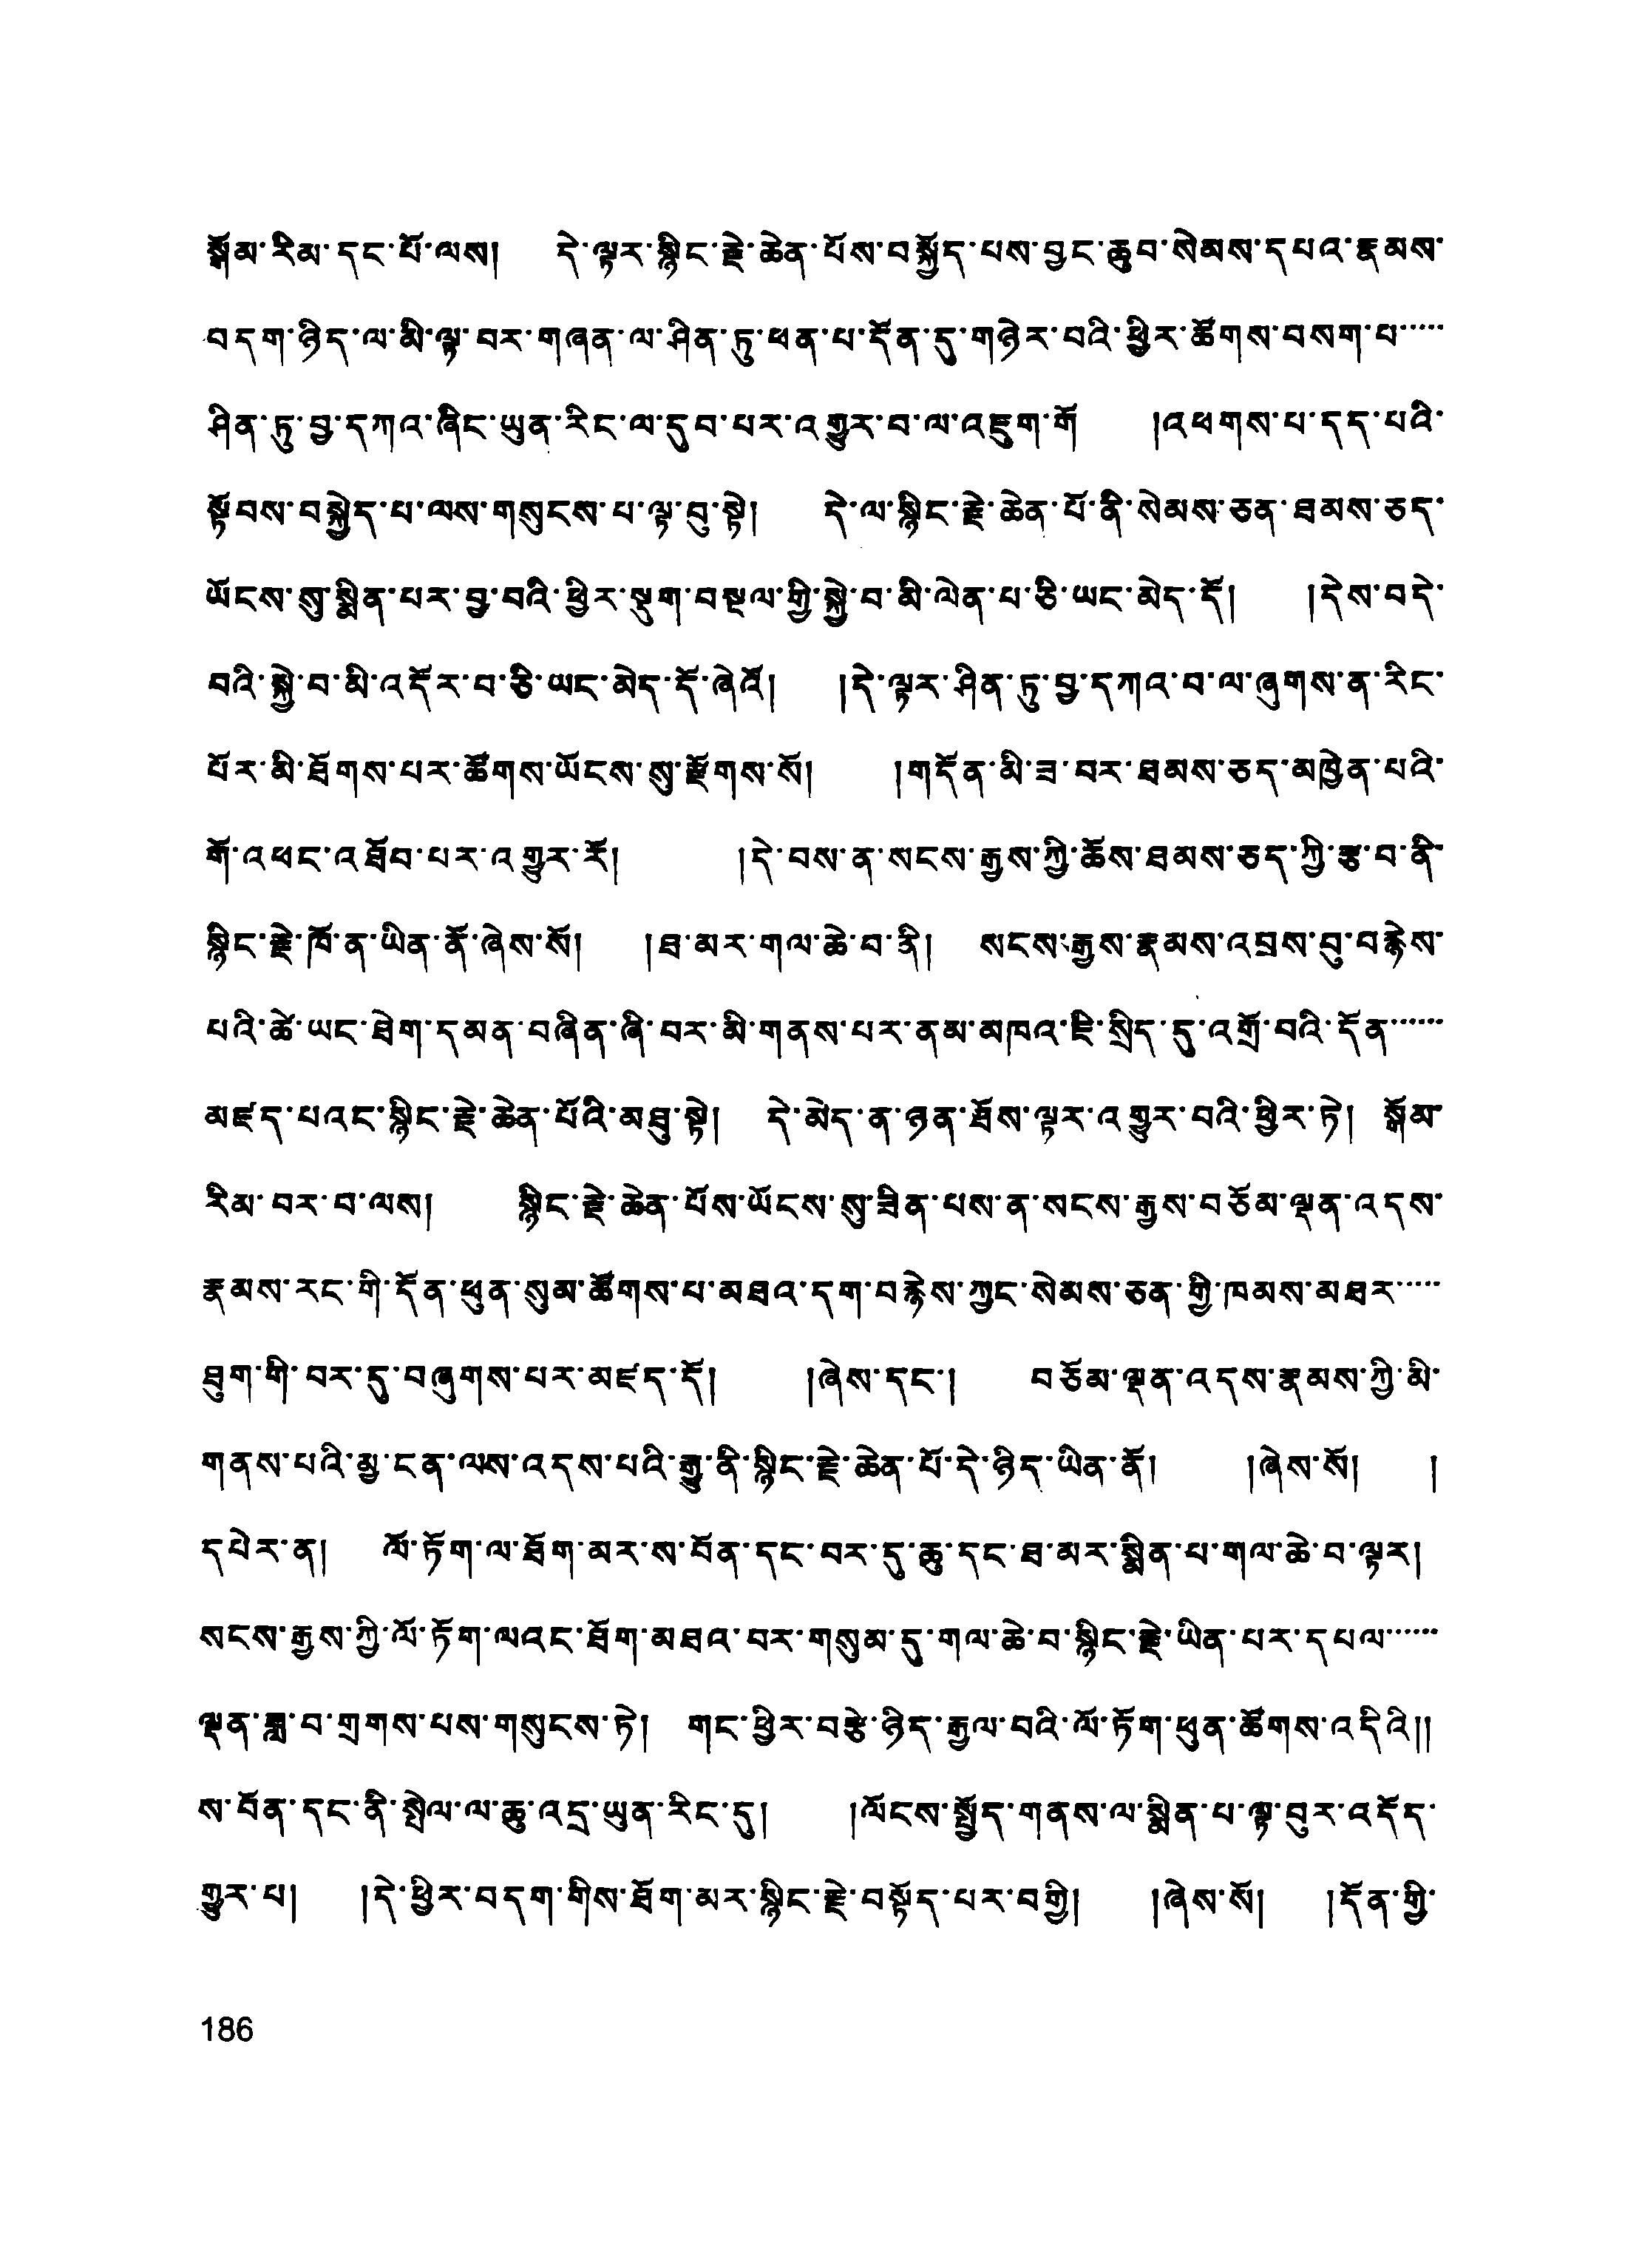 སྒོམ་རིམ་དང་པོ་ལས།  དེ་ལྟར་སྙིང་རྗེ་ཆེན་པོས་བསྐྱོད་པས་བྱང་ཆུབ་སེམས་དཔའ་རྣམས་
བདག་ཉིད་ལ་མི་ལྟ་བར་གཞན་ལ་ཤིན་ཏུ་ཕན་པ་དོན་དུ་གཉེར་བའི་ཕྱིར་ཚོགས་བསག་པ་་་་་
ཤིན་ཏུ་བྱ་དཀའ་ཞིང་ཡུན་རིང་ལ་དུབ་པར་འགྱུར་བ་ལ་འཇུག་གོ  །འཕགས་པ་དད་པའི་
སྟོབས་བསྐྱེད་པ་ལས་གསུངས་པ་ལྟ་བུ་སྟེ།  དེ་ལ་སྙིང་རྗེ་ཆེན་པོ་ནི་སེམས་ཅན་ཐམས་ཅད་
ཡོངས་སུ་སྨིན་པར་བྱ་བའི་ཕྱིར་སྡུག་བསྔལ་གྱི་སྐྱེ་བ་མི་ལེན་པ་ཅི་ཡང་མེད་དོ།  །དེས་བདེ་
བའི་སྐྱེ་བ་མི་འདོར་བ་ཅི་ཡང་མེད་དོ་ཞེའོ།  །དེ་ལྟར་ཤིན་ཏུ་བྱ་དཀའ་བ་ལ་ཞུགས་ན་རིང་
པོར་མི་ཐོགས་པར་ཚོགས་ཡོངས་སུ་རྫོགས་སོ།  །གདོན་མི་ཟ་བར་ཐམས་ཅད་མཁྱེན་པའི་
གོ་འཕང་འཐོབ་པར་འགྱུར་རོ།  །དེ་བས་ན་སངས་རྒྱས་ཀྱི་ཆོས་ཐམས་ཅད་ཀྱི་རྩ་བ་ནི་
སྙིང་རྗེ་ཁོ་ན་ཡིན་ནོ་ཞེས་སོ།  །ཐ་མར་གལ་ཆེ་བ་ནི།  སངས་རྒྱས་རྣམས་འབྲས་བུ་བརྙེས་
པའི་ཚེ་ཡང་ཐེག་དམན་བཞིན་ཞི་བར་མི་གནས་པར་ནམ་མཁའ་ཇི་སྲིད་དུ་འགྲོ་བའི་དོན་་་་་་
མཛད་པའང་སྙིང་རྗེ་ཆེན་པོའི་མཐུ་སྟེ།  དེ་མེད་ན་ཉན་ཐོས་ལྟར་འགྱུར་བའི་ཕྱིར་ཏེ།  སྒོམ་
རིམ་བར་བ་ལས།  སྙིང་རྗེ་ཆེན་པོས་ཡོངས་སུ་ཟིན་པས་ན་སངས་རྒྱས་བཅོམ་ལྡན་འདས་
རྣམས་རང་གི་དོན་ཕུན་སུམ་ཚོགས་པ་མཐའ་དག་བརྙེས་ཀྱང་སེམས་ཅན་གྱི་ཁམས་མཐར་་་་་
ཐུག་གི་བར་དུ་བཞུགས་པར་མཛད་དོ།  །ཞེས་དང་།  བཅོམ་ལྡན་འདས་རྣམས་ཀྱི་མི་
གནས་པའི་མྱ་ངན་ལས་འདས་པའི་རྒྱུ་ནི་སྙིང་རྗེ་ཆེན་པོ་དེ་ཉིད་ཡིན་ནོ།  །ཞེས་སོ།  །
དཔེར་ན།  ལོ་ཏོག་ལ་ཐོག་མར་ས་བོན་དང་བར་དུ་ཆུ་དང་ཐ་མར་སྨིན་པ་གལ་ཆེ་བ་ལྟར།
སངས་རྒྱས་ཀྱི་ལོ་ཏོག་ལའང་ཐོག་མཐའ་བར་གསུམ་དུ་གལ་ཆེ་བ་སྙིང་རྗེ་ཡིན་པར་དཔལ་་་་་་
ལྡན་ཟླ་བ་གྲགས་པས་གསུངས་ཏེ།  གང་ཕྱིར་བརྩེ་ཉིད་རྒྱལ་བའི་ལོ་ཏོག་ཕུན་ཚོགས་འདིའི།།
ས་བོན་དང་ནི་སྤེལ་ལ་ཆུ་འདྲ་ཡུན་རིང་དུ།  །ལོངས་སྤྱོད་གནས་ལ་སྨིན་པ་ལྟ་བུར་འདོད་
གྱུར་པ།  །དེ་ཕྱིར་བདག་གིས་ཐོག་མར་སྙིང་རྗེ་བསྟོད་པར་བགྱི།  །ཞེས་སོ།  །དོན་གྱི་
186